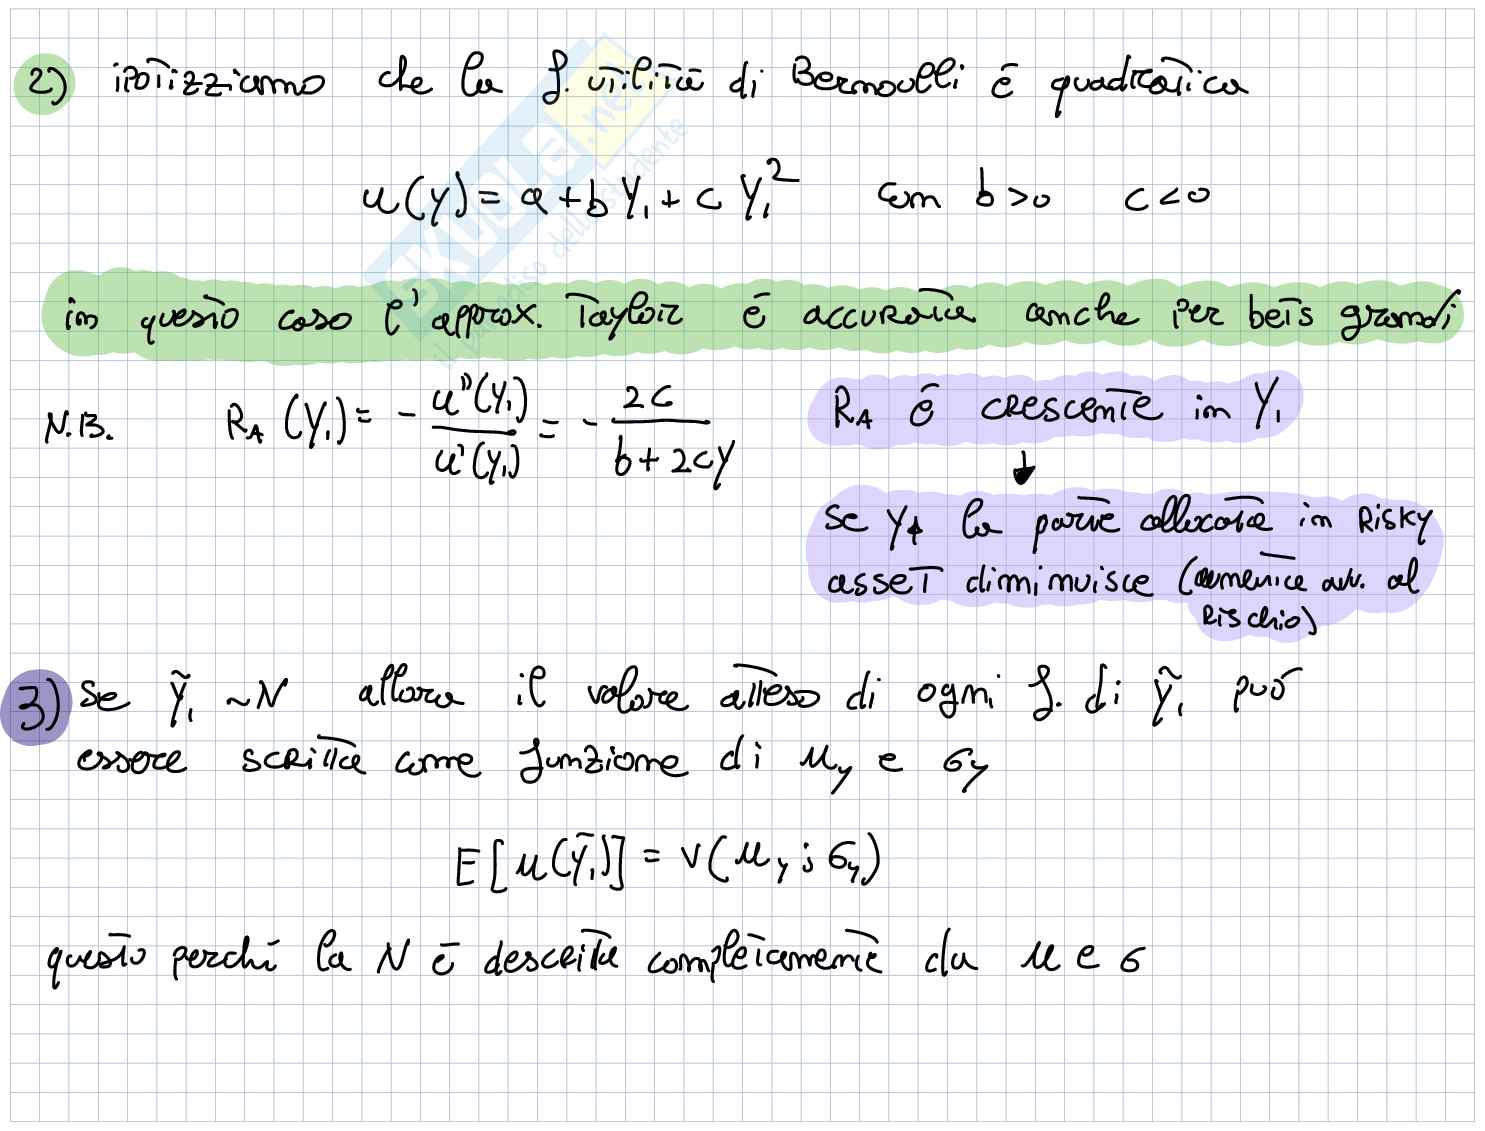 2) ipotizziamo che la f. utilità di Bernoulli è quadratica
u(y) = a + b Y₁ + c Y₁² con b > 0 c < 0
in questo caso l'approx. Taylor è accurata anche per bets grandi
N.B. R_A (Y₁) = - u''(Y₁) / u'(Y₁) = - 2c / b + 2cy
R_A è crescente in Y₁
↓
se y↑ la parte allocata in Risky
asset diminuisce (aumenta avv. al
Rischio)
3) se Ỹ₁ ~ N allora il valore atteso di ogni f. di Ỹ₁ può
essere scritta come funzione di μy e σy
E[u(Ỹ₁)] = v(μy ; σy)
questo perché la N è descritta completamente da μ e σ
SKUOLA.net
il paradiso dello studente